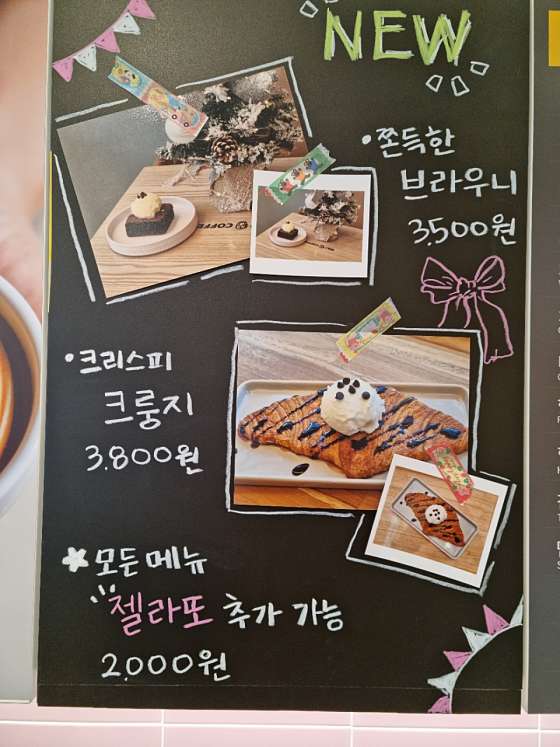 NEW
•쫀득한
브라우니
3,500원
COFFEE
•크리스피
크룽지
3,800원
모든 메뉴
젤라또 추가 가능
2,000원